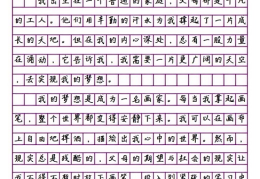 我出生在一个普通的家庭，父母都是平凡
的工人。他们用辛勤的汗水为我撑起了一片成
长的天地。但在我的内心深处，总有一股力量
在涌动，它告诉我，我需要一片更广阔的天空
，去实现我的梦想。
我的梦想是成为一名画家。每当我拿起画
笔，整个世界都变得安静下来。我可以在画布
上自由地挥洒，描绘出我心中的世界。然而，
现实总是残酷的，父母的期望与社会的现实让
我不得不暂时放下画笔，